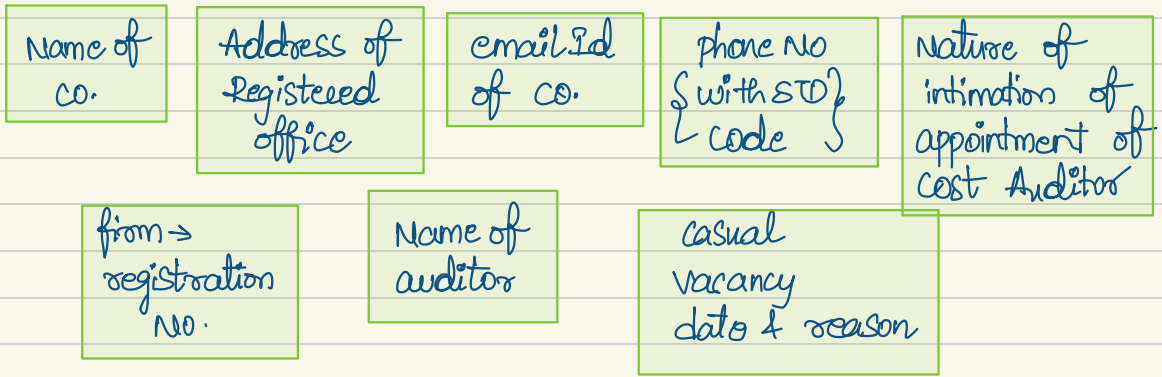 Name of
co.
Address of
Registered
office
email Id
of co.
phone No
{with STD}
code
Nature of
intimation of
appointment of
cost Auditor
firm →
registration
No.
Name of
auditor
casual
vacancy
date & reason